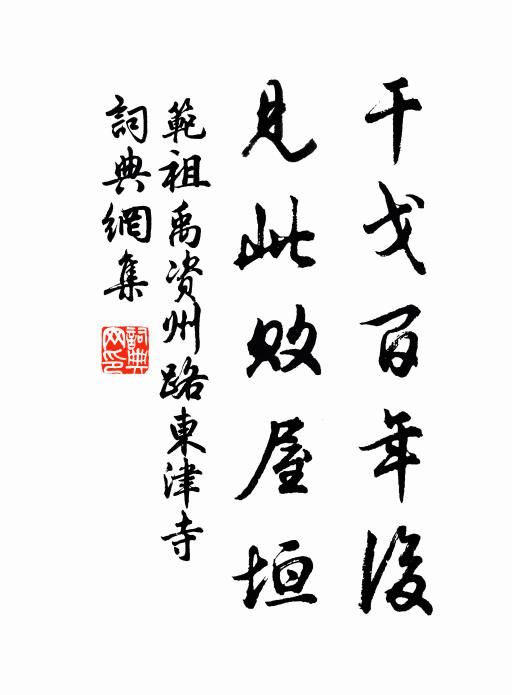 干戈百年後
見此敗屋垣
範祖禹資州路東津寺
詞典網集
詞典網印